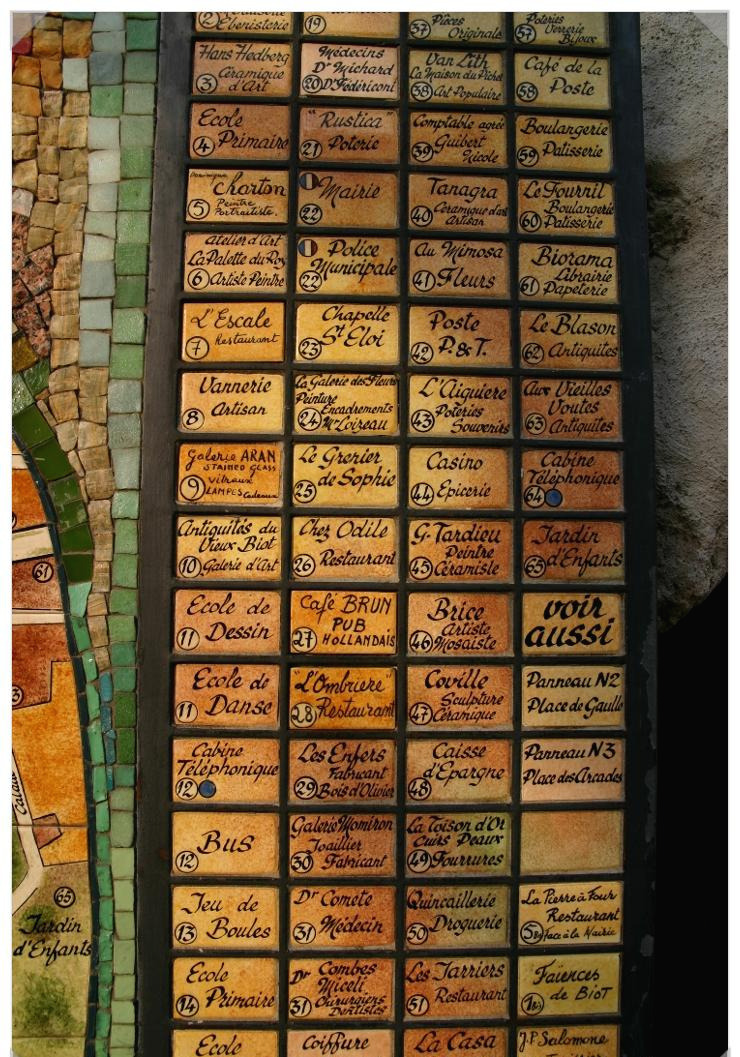 2 Ebenisterie
3 Hans Hedberg
Céramique
d'Art
4 Ecole
Primaire
5 Dominique
Charton
Peintre
Portraitiste.
atelier d'Art
La Palette du Roy
6 Artiste Peintre
L'Escale
7 Restaurant
Vannerie
8 Artisan
Galerie ARAN
STAINED GLASS
9 vitraux
LAMPES Cadeaux
Antiquités du
Vieux Biot
10 Galerie d'Art
Ecole de
11 Dessin
Ecole de
11 Danse
Cabine
Téléphonique
12
Bus
12
Jeu de
13 Boules
Ecole
14 Primaire
Ecole
19
Médecins
Dr Michard
20 Dr Fédériconi
"Rustica"
21 Poterie
Mairie
22
Police
Municipale
22
Chapelle
23 St Eloi
La Galerie des Fleurs
Peinture
Encadrements
24 Mr Loizeau
Le Grenier
25 de Sophie
Chez Odile
26 Restaurant
Café BRUN
PUB
27 HOLLANDAIS
"L'Ombriere"
28 Restaurant
Les Enfers
Fabricant
29 Bois d'Olivier
Galerie Momiron
Joaillier
30 Fabricant
Dr Comete
31 Médecin
Dr Combes
Miceli
31 Chirurgiens
Dentistes
Coiffure
37 Pièces
Originale
Van Lith
La Maison du Pichet
38 Art Populaire
Comptable agréé
39 Guibert
Nicole
Tanagra
40 Céramique d'art
Artisan
Au Mimosa
41 Fleurs
Poste
42 P. & T.
L'Aiguiere
43 Poteries
Souvenirs
Casino
44 Epicerie
G. Tardieu
45 Peintre
Céramiste
Brice
Artiste
46 Mosaïste
Coville
Sculpture
47 Céramique
Caisse
d'Epargne
48
La Toison d'Or
Cuirs Peaux
49 Fourrures
Quincaillerie
50 Droguerie
Les Jarriers
51 Restaurant
La Casa
Poteries
57 Verrerie
Bijoux
Café de la
58 Poste
Boulangerie
59 Patisserie
Le Fournil
Boulangerie
60 Patisserie
Biorama
Librairie
61 Papeterie
Le Blason
62 Antiquites
Aux Vieilles
Voutes
63 Antiquites
Cabine
Téléphonique
64
Jardin
65 d'Enfants
voir
aussi
Panneau N2
Place de Gaulle
Panneau N3
Place des Arcades
La Pierre à Four
Restaurant
Face à la Mairie
Faïences
de BioT
J.P Salomone
61
65
Jardin
d'Enfants